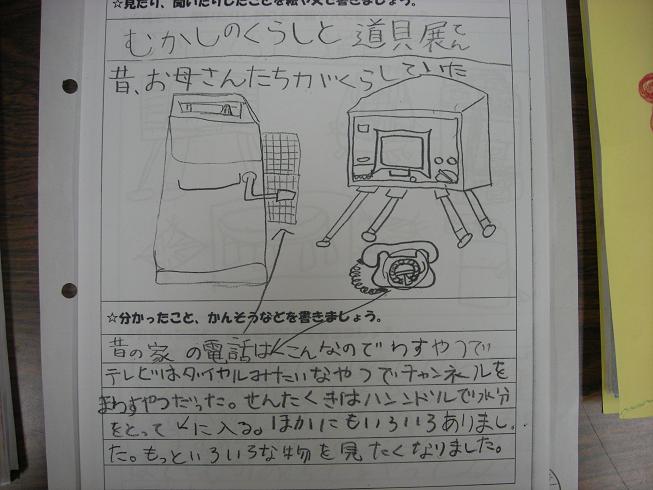 ☆見たり、聞いたりしたことを絵や文で書きましょう。
むかしのくらしと道具展てん
昔、お母さんたちがくらしていた
☆分かったこと、かんそうなどを書きましょう。
昔の家の電話はこんなのでわすやつで
テレビはダイヤルみたいなやつでチャンネールを
まわすやつだった。せんたくきはハンドルで水分
をとって に入る。ほかにもいろいろありまし
た。もっといろいろな物を見たくなりました。